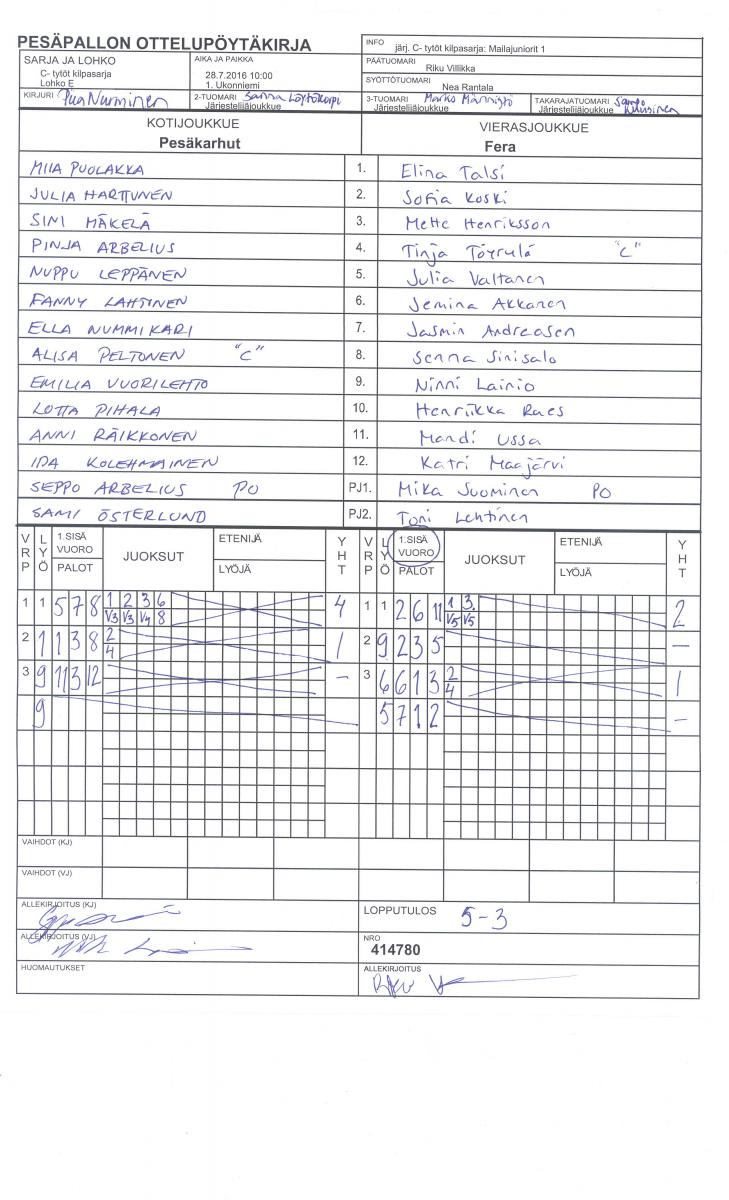 PESÄPALLON OTTELUPÖYTÄKIRJA
INFO järj. C- tytöt kilpasarja: Mailajuniorit 1
SARJA JA LOHKO
C- tytöt kilpasarja
Lohko E
AIKA JA PAIKKA
28.7.2016 10:00
1. Ukonniemi
PÄÄTUOMARI
Riku Villikka
SYÖTTÖTUOMARI
Nea Rantala
KIRJURI Piia Nurminen
2-TUOMARI Sanna Löytökorpi
Järjestelijäjoukkue
3-TUOMARI Marko Männistö
Järjestelijäjoukkue
TAKARAJATUOMARI Sampo
Järjestelijäjoukkue
KOTIJOUKKUE
Pesäkarhut
VIERASJOUKKUE
Fera
MIIA PUOLAKKA 1. Elina Talsi
JULIA HARTTUNEN 2. Sofia Koski
SINI MÄKELÄ 3. Mette Henriksson
PINJA ARBELIUS 4. Tinja Töyrylä "C"
NUPPU LEPPÄNEN 5. Julia Valtanen
FANNY LAHTINEN 6. Jemina Akkanen
ELLA NUMMIKARI 7. Jasmin Andreasen
ALISA PELTONEN "C" 8. Senna Sinisalo
EMILIA VUORILEHTO 9. Ninni Lainio
LOTTA PIHALA 10. Henriikka Raes
ANNI RÄIKKONEN 11. Mandi Ussa
IDA KOLEHMAINEN 12. Katri Maajärvi
SEPPO ARBELIUS PO PJ1. Mika Suominen PO
SAMI ÖSTERLUND PJ2. Toni Lehtinen
VRP LYÖ 1.SISÄ VUORO PALOT JUOKSUT ETENIJÄ LYÖJÄ YHT VRP LYÖ 1.SISÄ VUORO PALOT JUOKSUT ETENIJÄ LYÖJÄ YHT
1 1 5 7 8 1 2 3 6 4 1 1 2 6 11 1 3. 2
V3 V3 V4 8 V5 V5
2 1 1 3 8 2 1 2 9 2 3 5 –
4
3 9 11 3 12 – 3 6 6 1 3 2 1
4
9 5 7 1 2 –
VAIHDOT (KJ)
VAIHDOT (VJ)
ALLEKIRJOITUS (KJ)
LOPPUTULOS 5-3
ALLEKIRJOITUS (VJ)
NRO
414780
HUOMAUTUKSET
ALLEKIRJOITUS